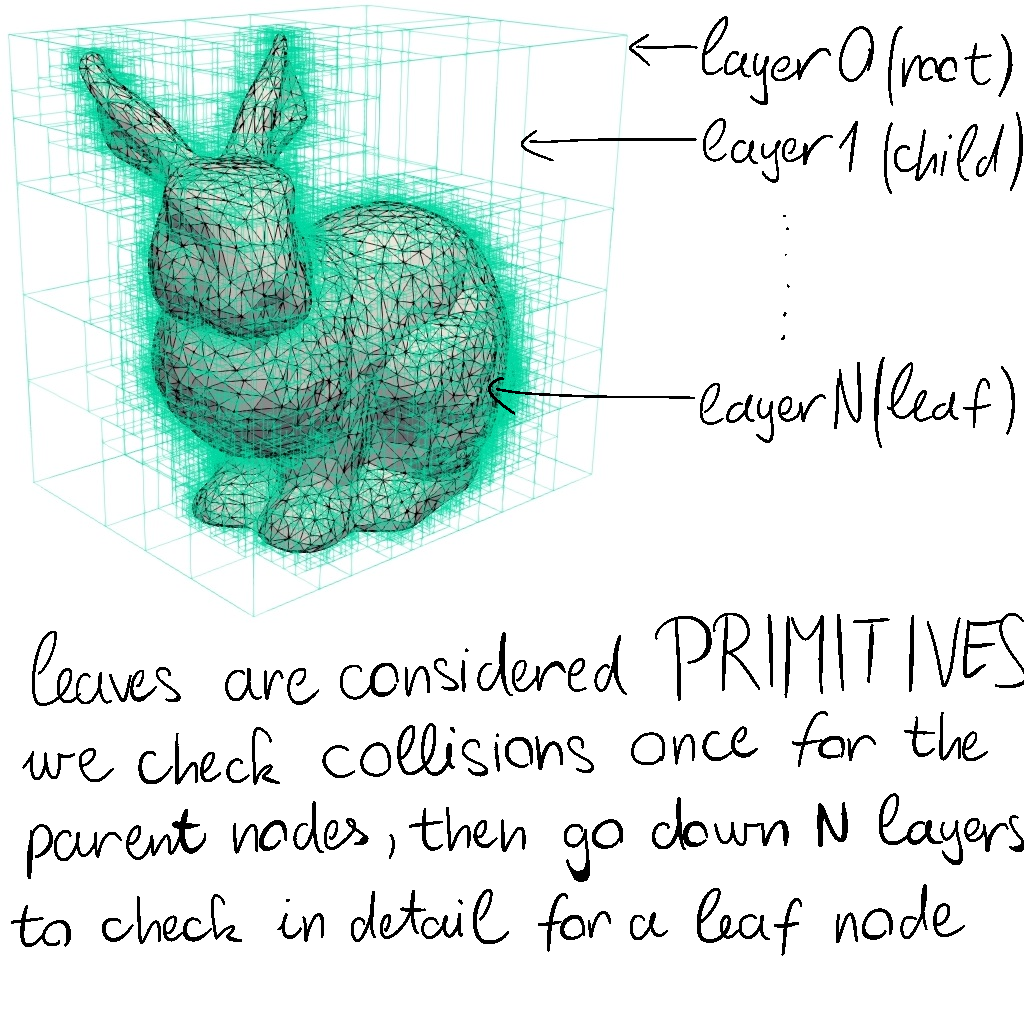 layer 0 (root)
layer 1 (child)
layer N (leaf)
leaves are considered PRIMITIVES
we check collisions once for the
parent nodes, then go down N layers
to check in detail for a leaf node